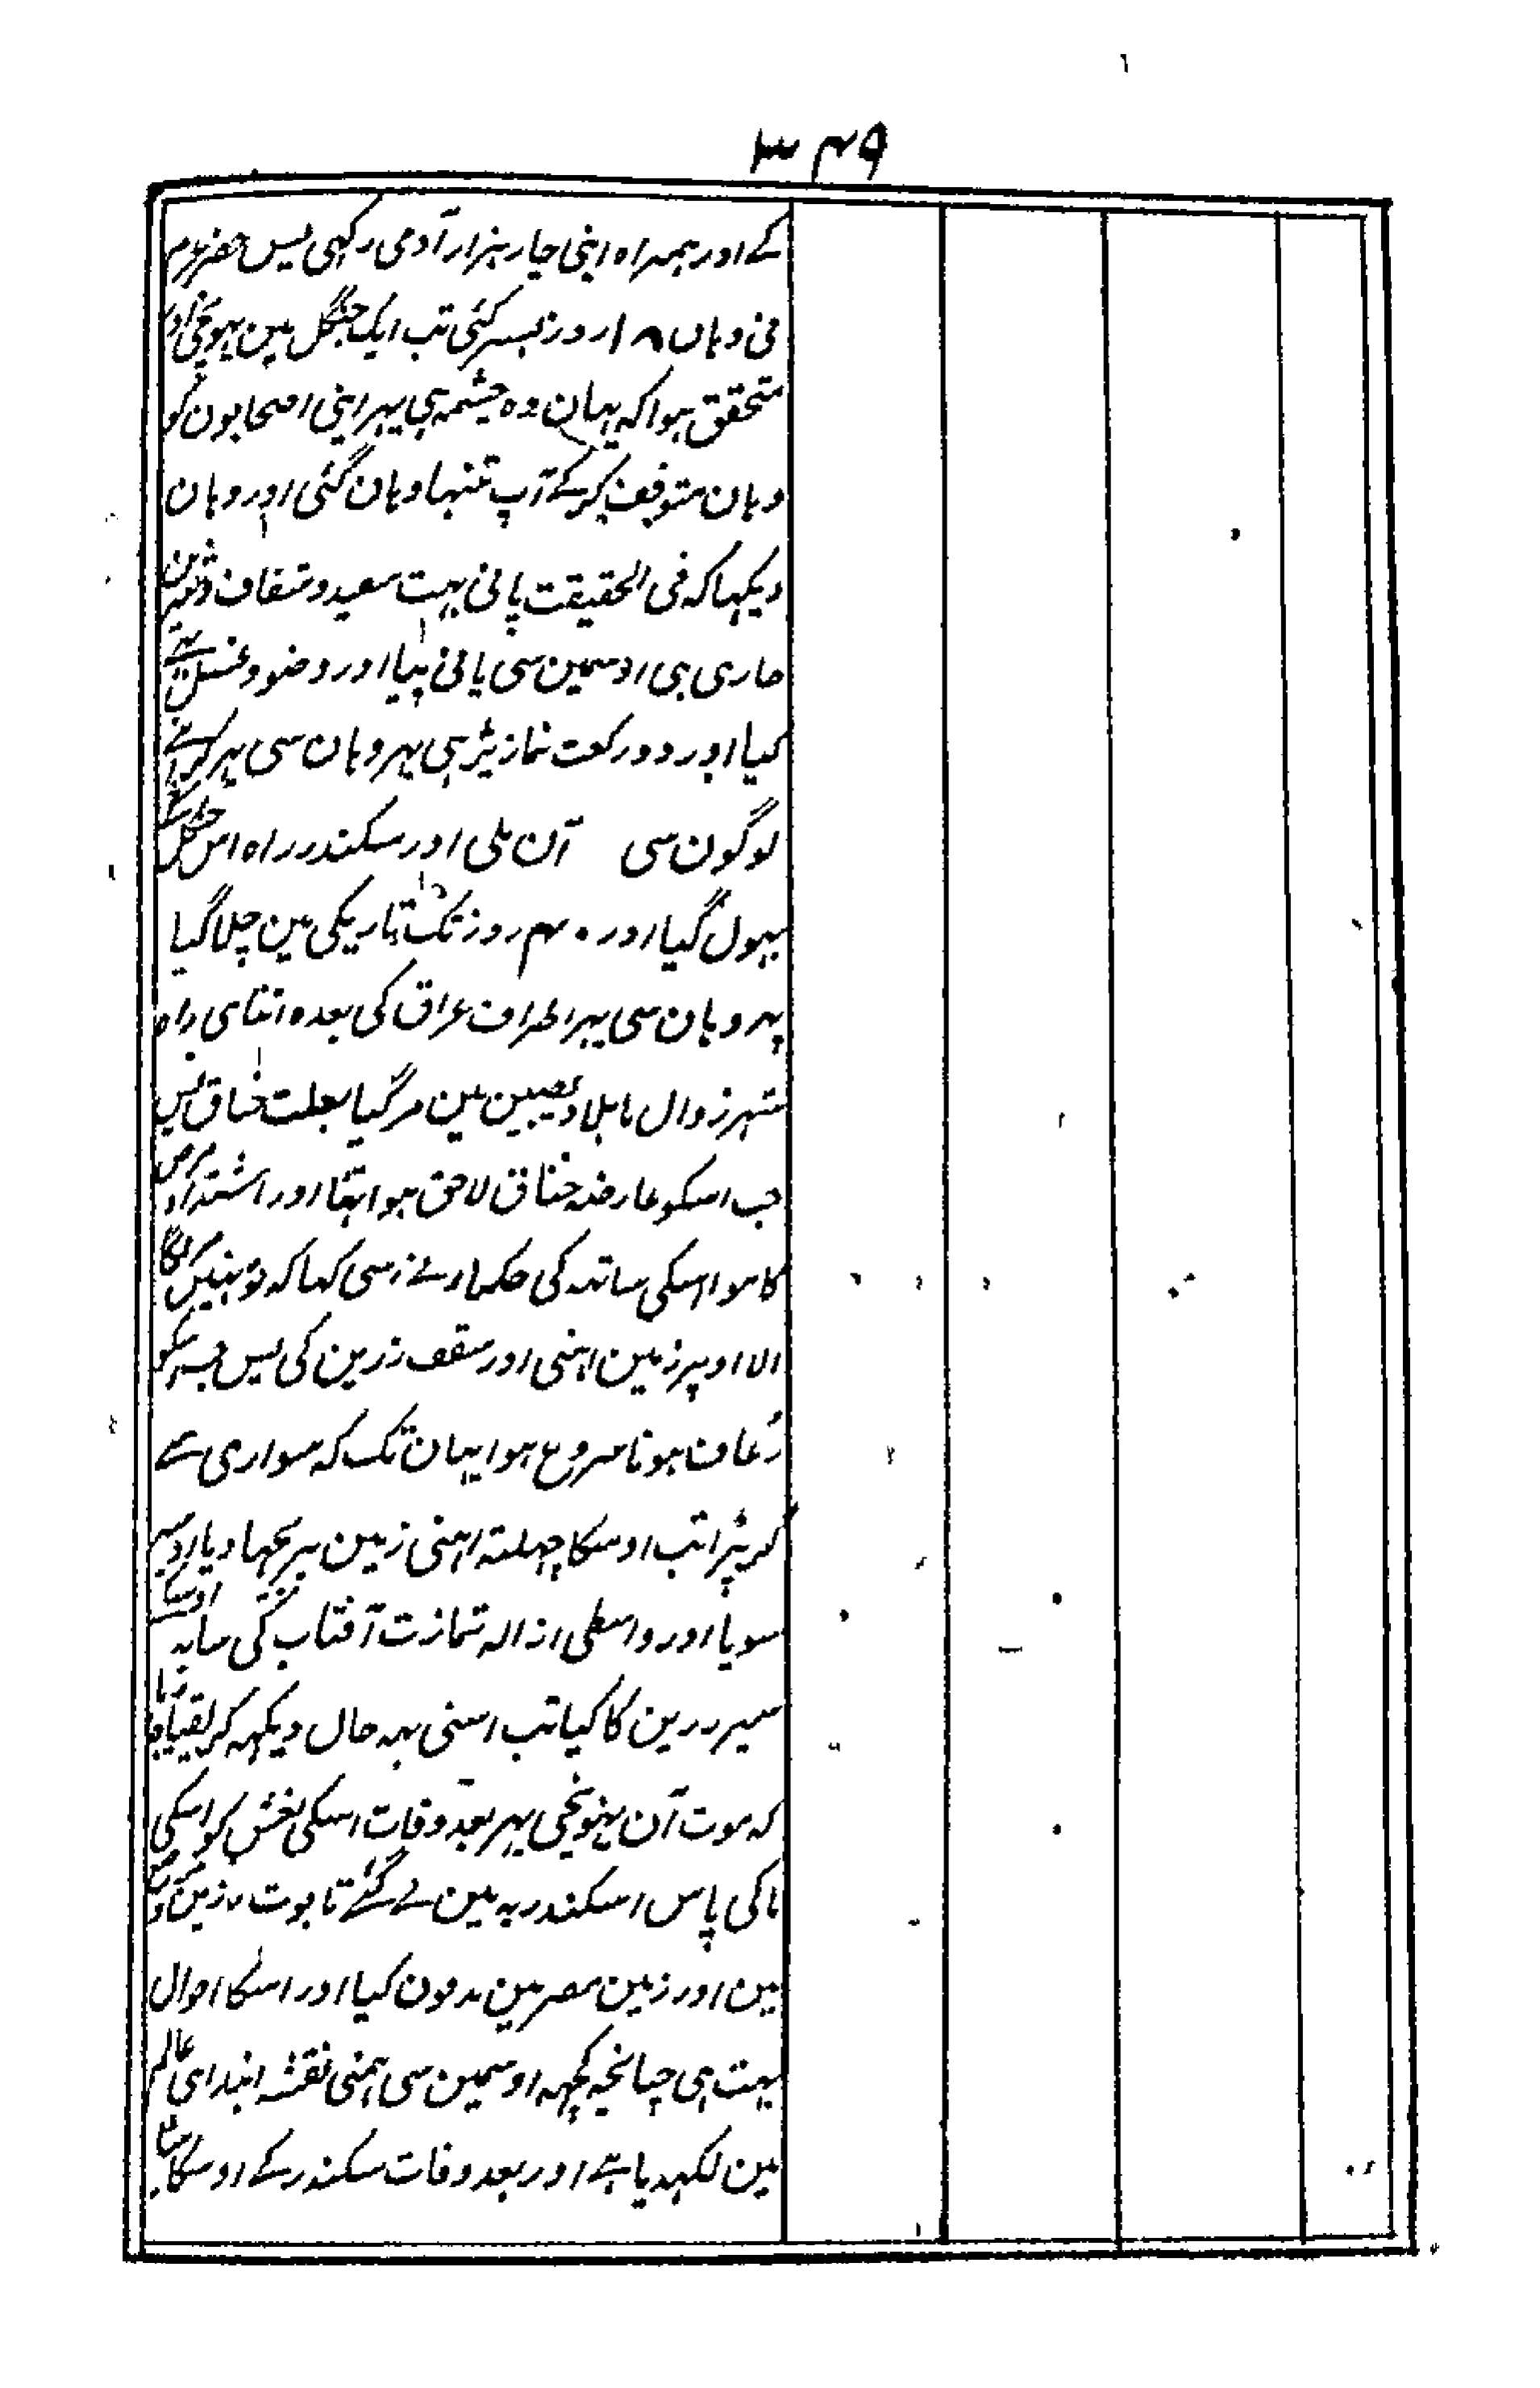 ۳۴۹
کے اور ہمراہ اپنی چار ہزار آدمی رکھی پس حضرعم
نی وہان ۱۸ روز بسر کئی تب ایک جنگل مین پہونچی اور
متحقق ہوا کہ یہان وہ چشمہ ہی پہر اپنی اصحابون کو
وہان متوقف کر کے آپ تنہا وہان گئی اور وہان
دیکہا کہ فی الحقیقت پانی بہت سعید و شفاف و شیرین
جاری ہی اوسمین سی پانی پیا اور وضو و غسل
کیا اور دو رکعت نماز پڑہی پہر وہان سی پہر کر اپنے
لوگون سی آن ملی اور سکندر راہ اس جنگل سے
بہول گیا اور ۴۰ روز تک تاریکی مین چلا گیا
پہر وہان سی پہر اطراف عراق کی بعدہ اثنای راہ
شہر زوال بابلاد نصیبین مین مر گیا بعلت خناق پس
جب اسکو عارضہ خناق لاحق ہوا تہا اور اشتداد مرض
کا ہوا اسکی ساتہہ کی حکمارنے اسی کہا کہ تو نہیں مریگا
الا اوپر زمین اہنی اور سقف زرین کی پس جب اسکو
رُعاف ہونا شروع ہوا یہان تک کہ سواری سے
گر پڑا تب اوسکا چہلتہ اہنی زمین پر بچہا دیا اوسپر
سویا اور واسطی ازالہ تمازت آفتاب کی سایہ اوسکا
سپر زرین کا کیا تب اسنی یہہ حال دیکہہ کر یقیناً جانا
کہ موت آن پہونچی پہر بعد وفات اسکی نعش کو اسکی
ما کی پاس اسکندریہ مین لے گئے تابوت زرین مین
مین اور زمین مصر مین مدفون کیا اور اسکا احوال
بہت ہی چنانچہ کچہہ اوسمین سی ہمنی نقشہ ابتدای عالم
مین لکہدیا ہے اور بعد وفات سکندر کے اوسکا